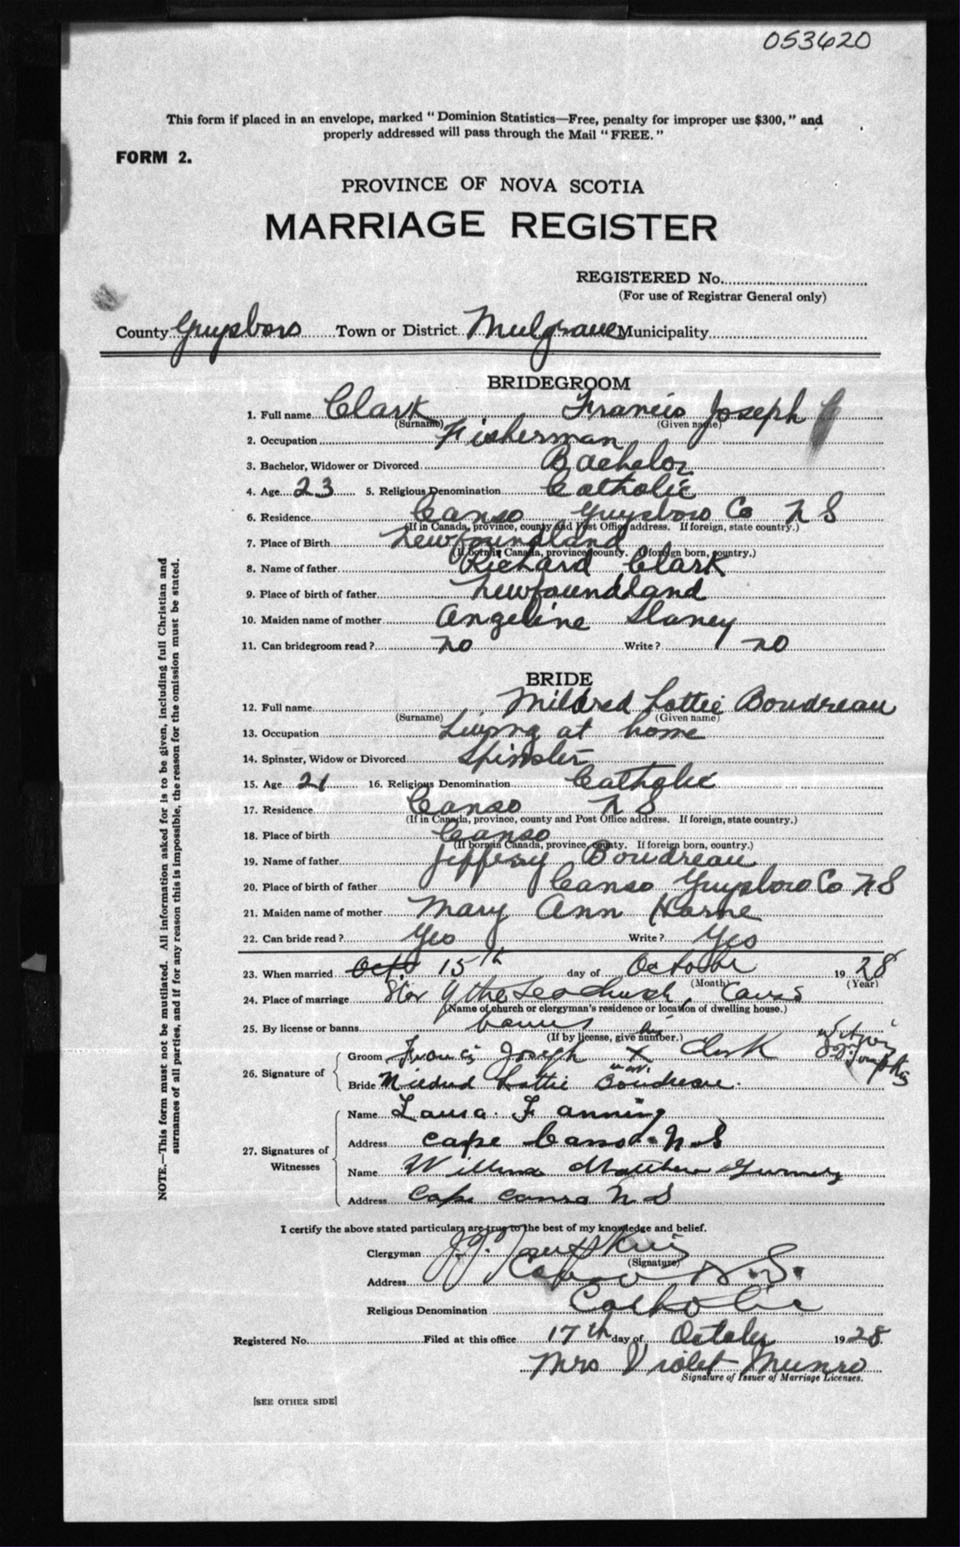 053620
This form if placed in an envelope, marked "Dominion Statistics—Free, penalty for improper use $300," and
properly addressed will pass through the Mail "FREE."
FORM 2.
PROVINCE OF NOVA SCOTIA
MARRIAGE REGISTER
REGISTERED No.
(For use of Registrar General only)
County Guysboro Town or District Mulgrave Municipality
BRIDEGROOM
1. Full name Clark Francis Joseph
(Surname) (Given name)
2. Occupation Fisherman
3. Bachelor, Widower or Divorced Bachelor
4. Age 23 5. Religious Denomination Catholic
6. Residence Canso Guysboro Co N S
(If in Canada, province, county and Post Office address. If foreign, state country.)
7. Place of Birth Newfoundland
(If born in Canada, province, county. If foreign born, country.)
8. Name of father Richard Clark
9. Place of birth of father Newfoundland
10. Maiden name of mother Angeline Slaney
11. Can bridegroom read? no Write? no
BRIDE
12. Full name Mildred Lottie Boudreau
(Surname) (Given name)
13. Occupation Living at home
14. Spinster, Widow or Divorced Spinster
15. Age 21 16. Religious Denomination Catholic
17. Residence Canso N S
(If in Canada, province, county and Post Office address. If foreign, state country.)
18. Place of birth Canso
(If born in Canada, province, county. If foreign born, country.)
19. Name of father Jeffery Boudreau
20. Place of birth of father Canso Guysboro Co N S
21. Maiden name of mother Mary Ann Horne
22. Can bride read? Yes Write? Yes
23. When married Oct 15th day of October 1928
(Month) (Year)
24. Place of marriage Star of the Sea Church, Canso
(Name of church or clergyman's residence or location of dwelling house.)
25. By license or banns banns
(If by license, give number.)
his
26. Signature of
Groom Francis Joseph X Clark
mark
Bride Mildred Lottie Boudreau.
27. Signatures of Witnesses
Name Laura Fanning
Address Cape Canso N S
Name Matthew
Address Cape Canso N S
I certify the above stated particulars are true to the best of my knowledge and belief.
Clergyman J.J. Tompkins
(Signature)
Address Canso N.S.
Religious Denomination Catholic
Registered No. Filed at this office 17th day of October 1928
Mrs Violet Munro
Signature of Issuer of Marriage Licenses.
[SEE OTHER SIDE]
NOTE.—This form must not be mutilated. All information asked for is to be given, including full Christian and
surnames of all parties, and if for any reason this is impossible, the reason for the omission must be stated.